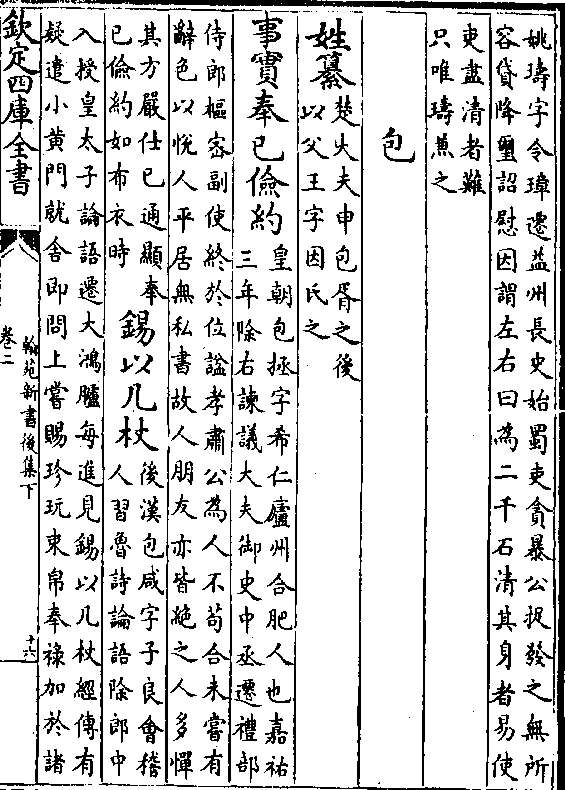 姚璹字令璋遷益州長史始蜀吏貪暴公捉發之無所
容貸降璽詔慰因謂左右曰為二千石清其身者易使
吏盡清者難
只唯璹兼之
包
姓纂
楚大夫申包胥之後
以父王字因氏之
事實奉已儉約
皇朝包拯字希仁廬州合肥人也嘉祐
三年除右諫議大夫御史中丞遷禮部
侍郎樞密副使終於位諡孝肅公為人不苟合未嘗有
辭色以悅人平居無私書故人朋友亦皆絶之人多憚
其方嚴仕已通顯奉
已儉約如布衣時
錫以几杖
後漢包咸字子良會稽
人習魯詩論語除郎中
入授皇太子論語遷大鴻臚每進見錫以几杖經傳有
疑遣小黄門就舍即問上嘗賜珍玩束帛奉祿加於諸
欽定四庫全書
翰苑新書後集下
卷二
十六